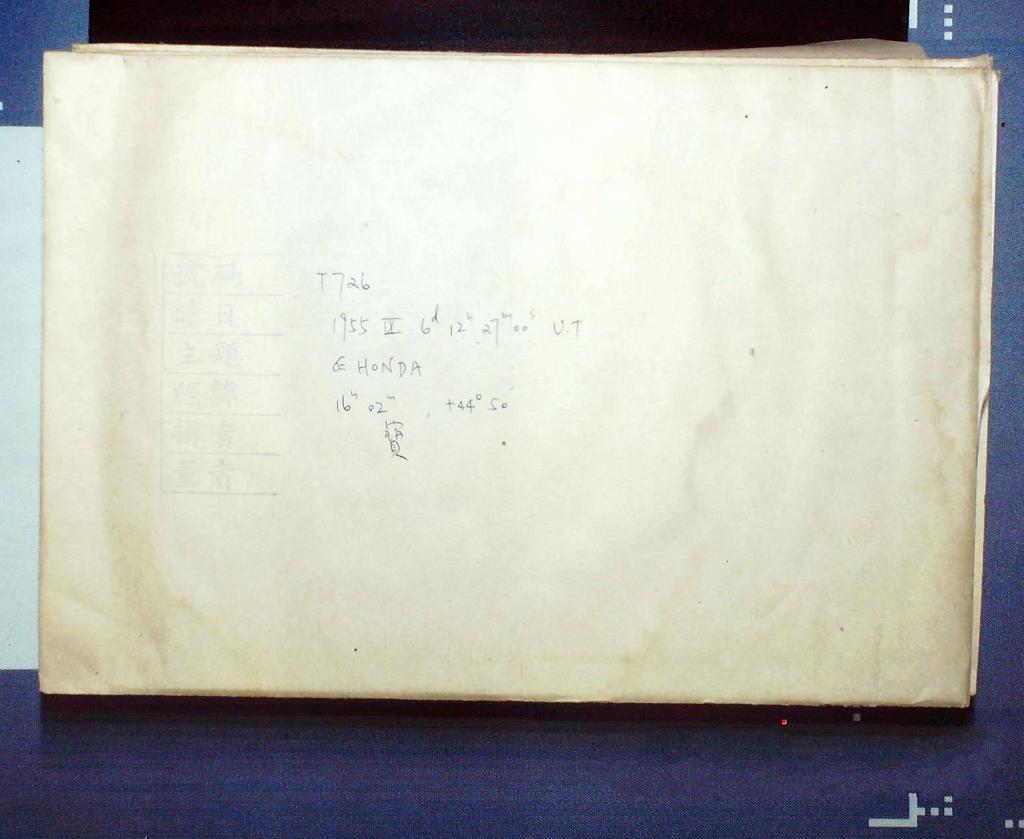 號碼
時日
主題
經緯
量者
T726
1955 IX 6ᵈ 12ʰ 27ᵐ 00ˢ U.T
☄ HONDA
16ʰ 02ᵐ , +44° 50'
寶